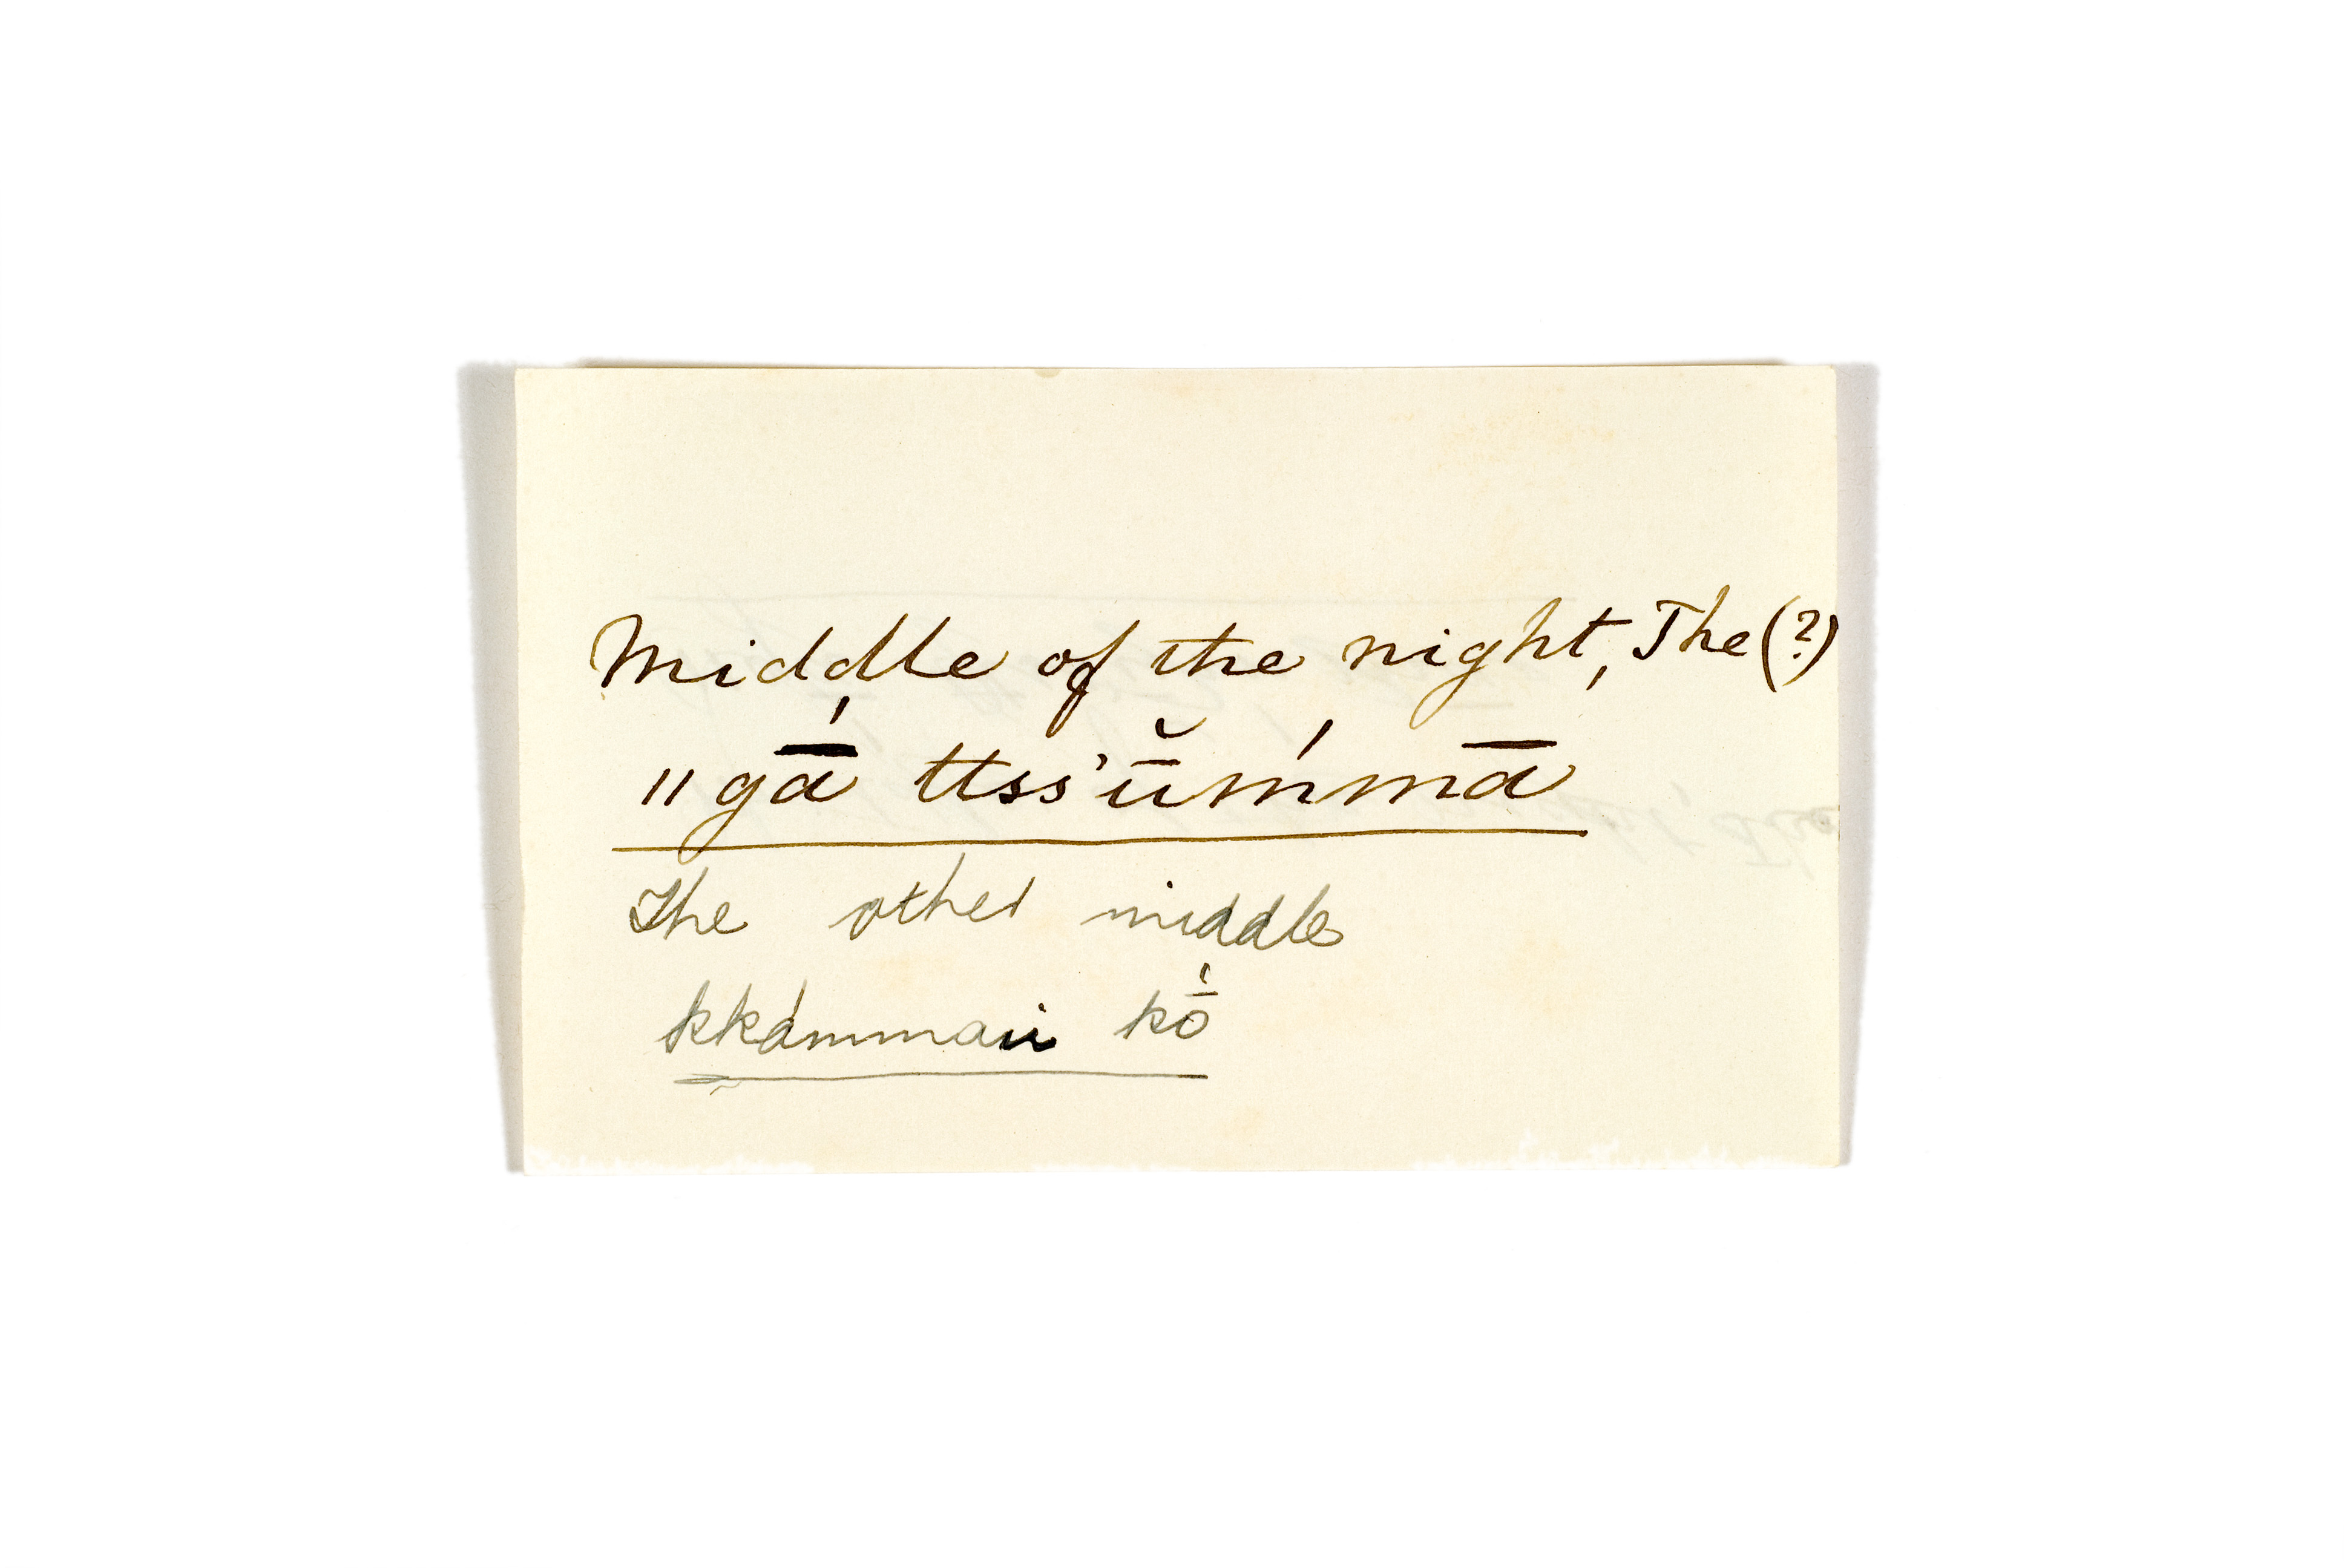 Middle of the night, The (?)
ǁgā́ ttss'ū̆m'mā
The other middle
kkámmaii kṓ